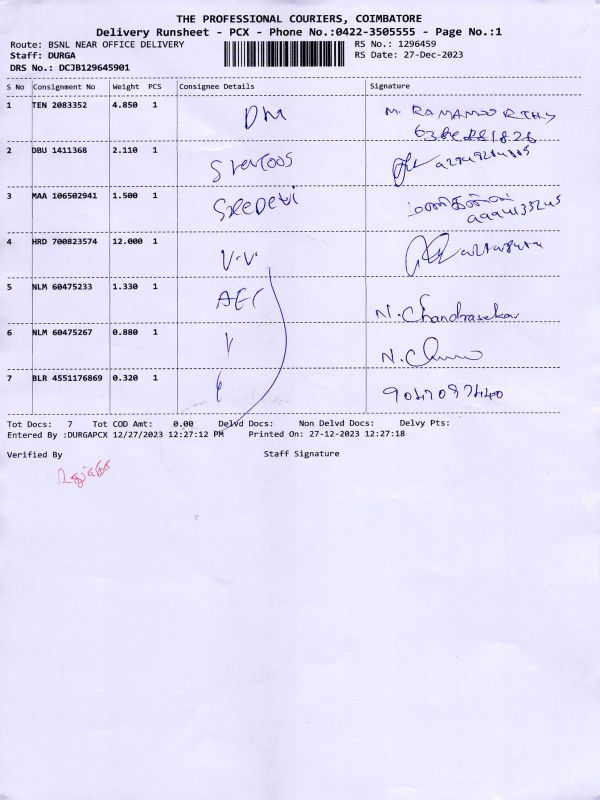 THE PROFESSIONAL COURIERS, COIMBATORE
Delivery Runsheet - PCX - Phone No.:0422-3505555 - Page No.:1
Route: BSNL NEAR OFFICE DELIVERY RS No.: 1296459
Staff: DURGA RS Date: 27-Dec-2023
DRS No.: DCJB129645901
S No Consignment No Weight PCS Consignee Details Signature
1 TEN 2083352 4.850 1 DM M. RAMAMOORTHY
2 DBU 1411368 2.110 1
3 MAA 106502941 1.500 1 SREEDEVI
4 HRD 700823574 12.000 1 V.V.
5 NLM 60475233 1.330 1 AEC N. Chandrasekar
6 NLM 60475267 0.880 1
7 BLR 4551176869 0.320 1
Tot Docs: 7 Tot COD Amt: 0.00 Delvd Docs: Non Delvd Docs: Delvy Pts:
Entered By :DURGAPCX 12/27/2023 12:27:12 PM Printed On: 27-12-2023 12:27:18
Verified By Staff Signature